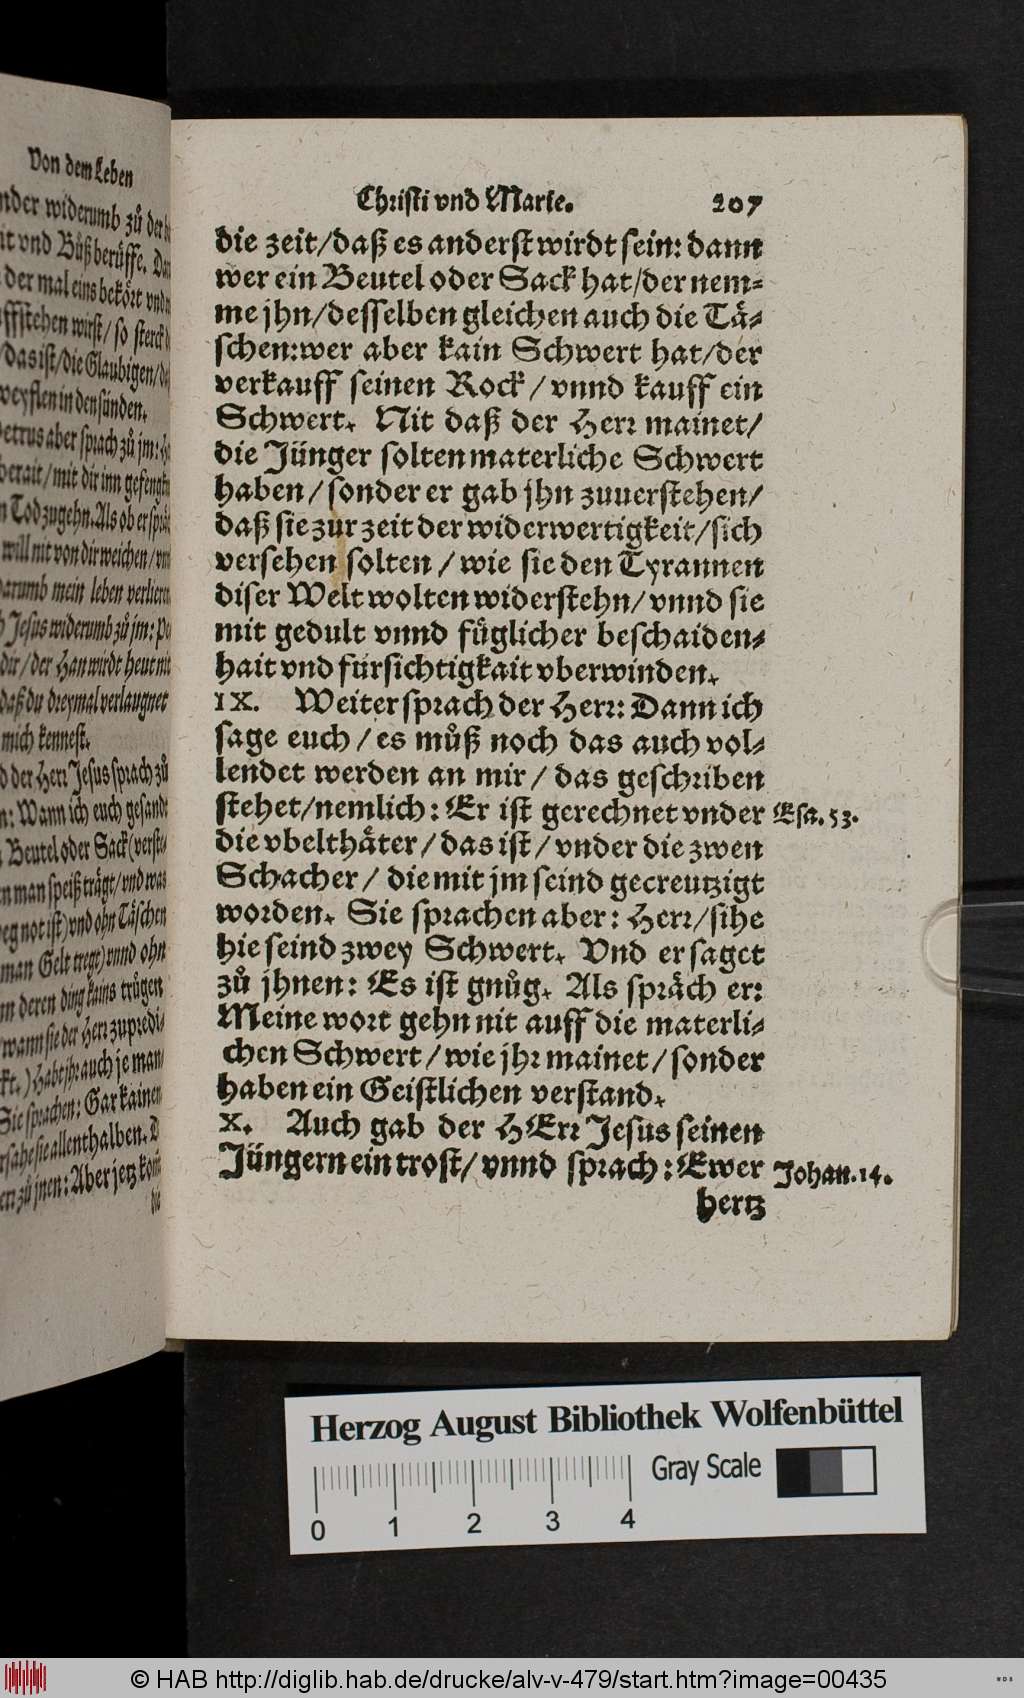 Von dem Leben
nder widerumb zů der
it vnd Bůß berüffe.
der mal eins bekört
ffstehen wirst/ so sterck
/das ist/die Glaubigen/
weyflen in den sünden.
etrus aber sprach zů jm:
berait/mit dir inn
Tod zugehn. Als ob er
will nit von dir weichen/
darumb mein leben
Jesus widerumb zů jm:
dir/der Han wirdt heut nit
daß du dreymal verlaugnet
mich kennest.
d der Herr Jesus sprach zů
n: Wann ich euch gesandt
Beutel oder Sack(verste-
en man speiß trägt/vnd was
weg not ist)vnd ohn Täschen
man Gelt tregt)vnnd ohn
deren ding kains trügen
wann sie der Herr zupredi-
Habt jhr auch je man-
Sie sprachen: Gar kainen
sie allenthalben.
zů jnen: Aber jetz
die
Christi vnd Marie. 207
die zeit/daß es anderst wirdt sein: dann
wer ein Beutel oder Sack hat/der nem-
me jhn/desselben gleichen auch die Tä-
schen:wer aber kain Schwert hat/der
verkauff seinen Rock/vnnd kauff ein
Schwert. Nit daß der Herr mainet/
die Jünger solten materliche Schwert
haben/sonder er gab jhn zuuerstehen/
daß sie zur zeit der widerwertigkeit/sich
versehen solten/wie sie den Tyrannen
diser Welt wolten widerstehn/vnnd sie
mit gedult vnnd füglicher beschaiden-
hait vnd fürsichtigkait vberwinden.
IX. Weiter sprach der Herr: Dann ich
sage euch/es můß noch das auch vol-
lendet werden an mir/das geschriben
stehet/nemlich: Er ist gerechnet vnder Esa. 53.
die vbelthäter/das ist/vnder die zwen
Schacher/die mit jm seind gecreutzigt
worden. Sie sprachen aber: Herr/sihe
hie seind zwey Schwert. Vnd er saget
zů jhnen: Es ist gnůg. Als spräch er:
Meine wort gehn nit auff die materli-
chen Schwert/wie jhr mainet/sonder
haben ein Geistlichen verstand.
X. Auch gab der HErr Jesus seinen
Jüngern ein trost/vnnd sprach: Ewer Johan. 14.
hertz
Herzog August Bibliothek Wolfenbüttel
Gray Scale
0 1 2 3 4
© HAB http://diglib.hab.de/drucke/alv-v-479/start.htm?image=00435